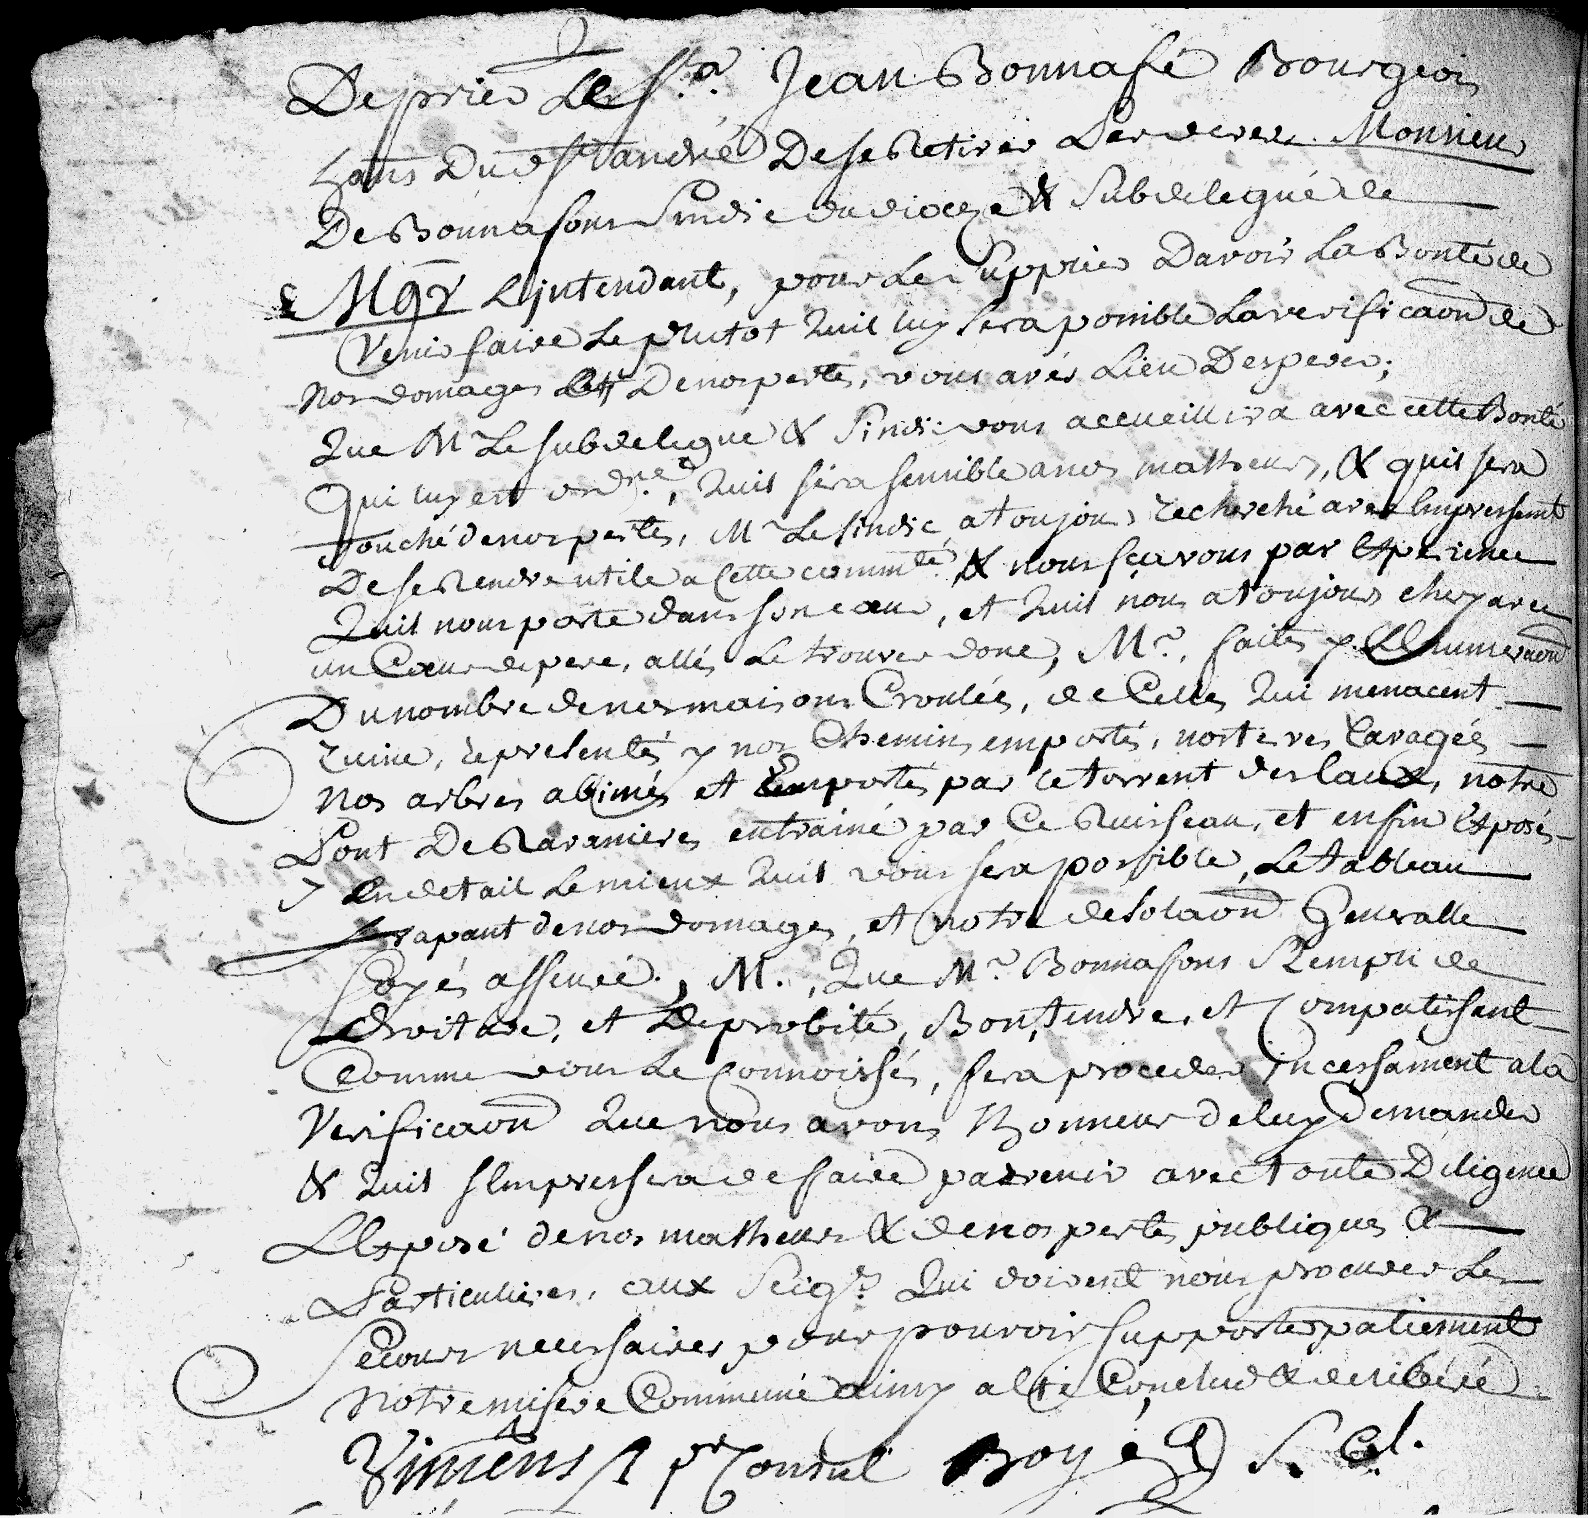 De prier le Sr. Jean Bonnafé Bourgeois
hans Du dt St andré De se Retirer devers Monsieur
De Bonnafons Sindic du diocèze & Subdelegué de
Mgr L'jntendant, pour le Supprier Davoir La Bonté de
Venir faire Le plutot Quil luy sera possible La verificaon de
Nos domages et De nos pertes, vous avés Lieu Desperer;
Que Mr Le subdelegue & Sindic vous accueillira avec cette Bonté
Qui luy est ordre., Quil sera sensible a nos malheurs, & quil sera
touché de nos pertes, Mr Le sindic a toujours recherché avec Empressemt
De se Rendre utile a Cette commté & nous sçavons par Experience
Quil nous porte dans son coeur, et Quil nous a toujours chery avec
un Coeur de pere, allés Le trouver donc, Mr. faites y. LEnumeraon
Du nombre de nos maisons Croulées, de Celles Qui menacent
ruine, representés y nos Chemins emportés, nos terres Ravagées
Nos arbres abimés et Emportés par le torrent des laux, notre
Pont De Ravanieres entrainé par Ce Ruisseau, et enfin Exposés
y En detail Le mieux Quil vous sera possible, Le tableau
frapant de nos domages, et notre desolaon Generalle
Soyés asseuré, M., Que Mr Bonnafons Rempli de
droiture, et De probité, Bon, tendre, et Compatissent
Comme vous Le Connoissés, fera proceder jncessament a la
Verificaon Que nous avons Lhonneur de luy demander
& Quil sEmpressera de faire parvenir avec toute Diligence
LExposé de nos malheurs & de nos pertes publiques &
Particulieres, aux Seigrs Qui doivent nous procurer Les
Secours necessaires pour pouvoir supporter patiement
Notre misere Commune ainsy a été Conclud & deliberé
Viniens pr Consul Boyé S. Cel.